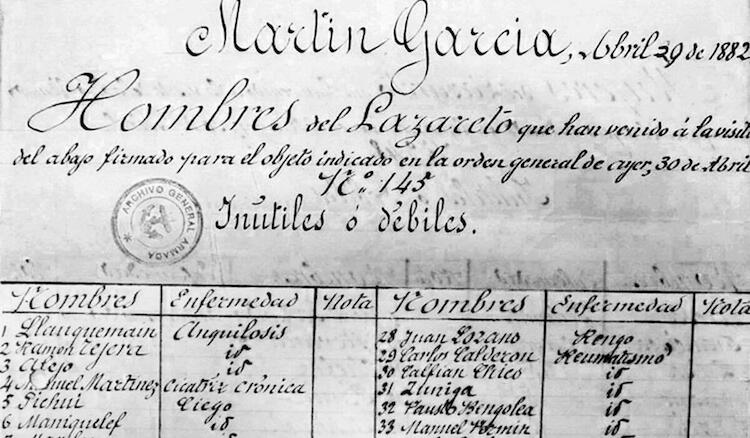 Martin Garcia, Abril 29 de 1882
Hombres del Lazareto que han venido á la visit
del abajo firmado para el objeto indicado en la orden general de ayer, 30 de Abril
Nº 145
ARCHIVO GENERAL ARMADA
Inútiles ó débiles.
Hombres Enfermedad Nota Hombres Enfermedad Nota
1 Llauquemain Anquilosis 28 Juan Lozano Rengo
2 Ramon Tejera id 29 Carlos Calderon Reumatismo
3 Alejo id 30 Calfian Chico id
4 Manuel Martinez Cicatriz Crónica 31 Zuñiga id
5 Pichui Ciego 32 Fausto Bengolea id
6 Maniquelef id 33 Manuel Fermin id